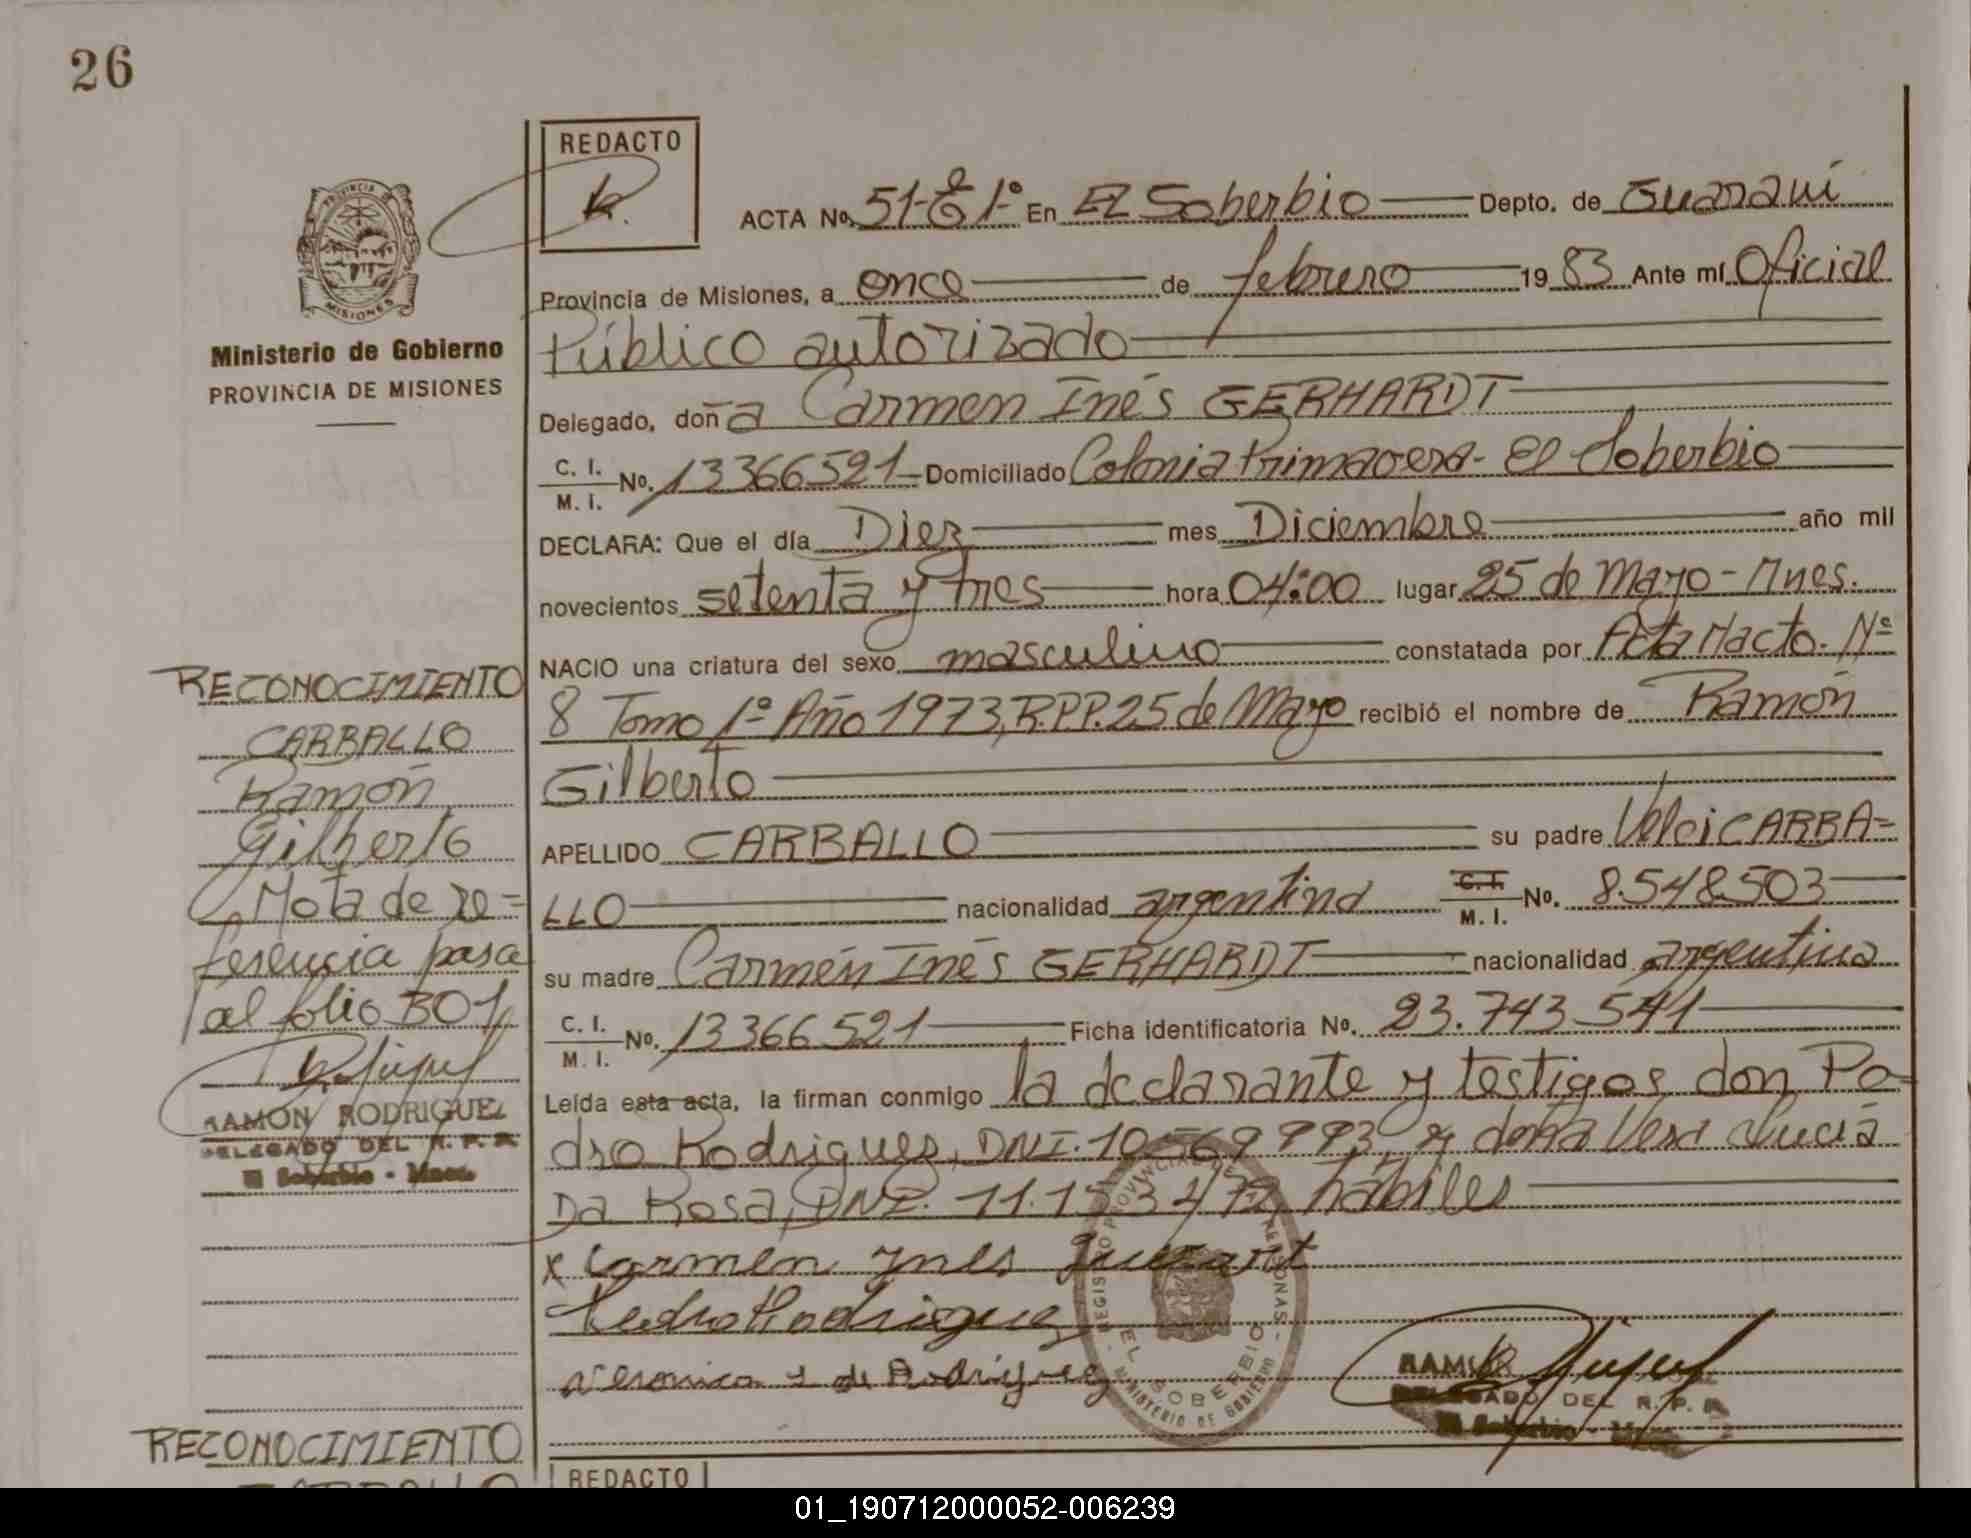 26
REDACTO
ACTA No. 51-Eº1º En El Soberbio Depto. de Guaraní
Provincia de Misiones, a once de febrero 19 83 Ante mí Oficial
Público autorizado
Delegado, doña Carmen Inés GERHARDT
C. I. M. I. No. 13366521 Domiciliado Colonia Primavera - El Soberbio
DECLARA: Que el día Diez mes Diciembre año mil
novecientos setenta y tres hora 04:00 lugar 25 de Mayo - Mnes.
NACIO una criatura del sexo masculino constatada por Acta Nacto. Nº
8 Tomo 1º Año 1973, R.P.P. 25 de Mayo recibió el nombre de Ramón
Gilberto
APELLIDO CARBALLO su padre Velci CARBA=
LLO nacionalidad argentina C. I. M. I. No. 8.548.503
su madre Carmén Inés GERHARDT nacionalidad argentina
C. I. M. I. No. 13366521 Ficha identificatoria No. 23.743.541
Leída esta acta, la firman conmigo la declarante y testigos don Pe-
dro Rodriguez, DNI. y doña Vera Lucia
Da Rosa, DNI. hábiles
x Carmen Ynes
Pedro Rodriguez
Veronica L de Rodriguez
REGISTRO PROVINCIAL DE LAS PERSONAS - EL SOBERBIO - MINISTERIO DE GOBIERNO
RAMON
DELEGADO DEL R. P. P.
El Soberbio - Mnes.
PROVINCIA DE MISIONES
Ministerio de Gobierno
PROVINCIA DE MISIONES
RECONOCIMIENTO
CARBALLO
Ramón
Gilberto
Nota de re=
ferencia pasa
al folio 301
RAMON RODRIGUEZ
DELEGADO DEL R. P. P.
El Soberbio - Mnes.
RECONOCIMIENTO
CARBALLO
REDACTO
01_190712000052-006239